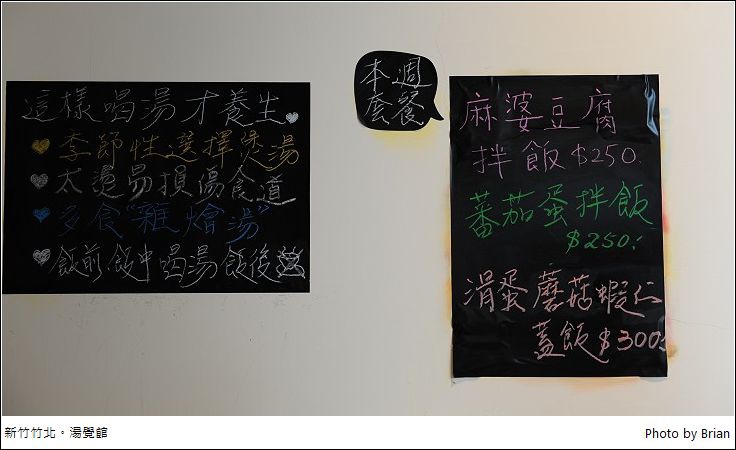 這樣喝湯才養生
季節性選擇煲湯
太燙易損傷食道
多食"雜燴湯"
飯前飯中喝湯飯後
本週
套餐
麻婆豆腐
拌飯 $250.
蕃茄蛋拌飯
$250.
滑蛋蘑菇蝦仁
蓋飯 $300.
新竹竹北。湯覺館
Photo by Brian